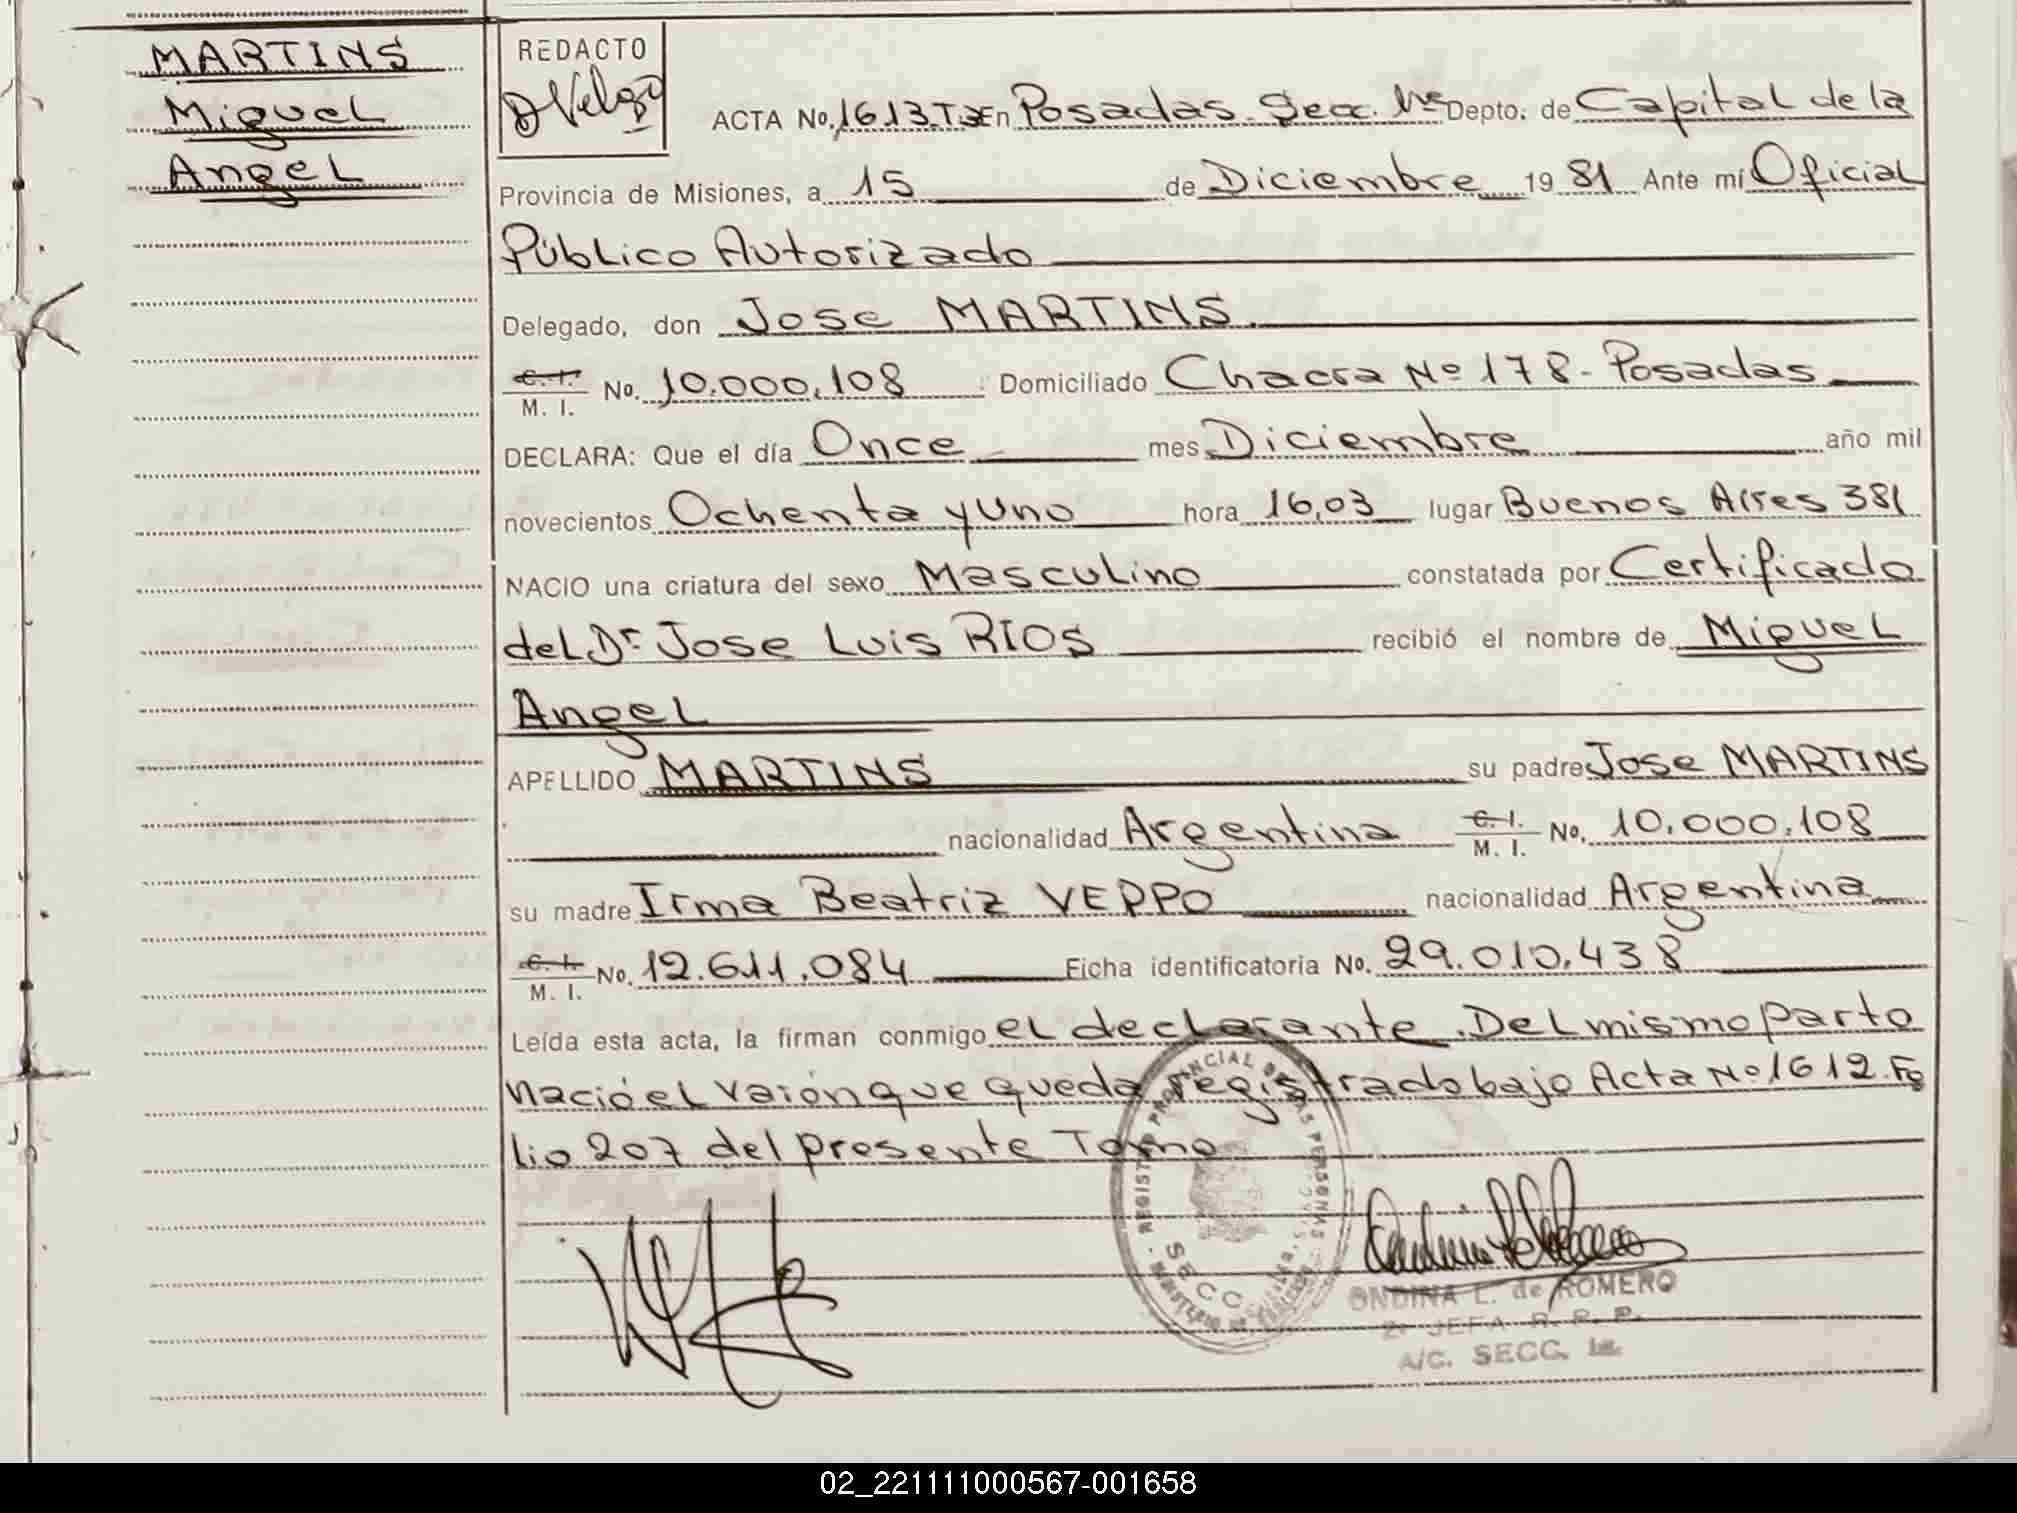 MARTINS
Miguel
Angel
REDACTO
ACTA No. 1613.T3 En Posadas. Secc. 1ra Depto. de Capital de la
Provincia de Misiones, a 15 de Diciembre 1981 Ante mí Oficial
Público Autorizado
Delegado, don Jose MARTINS.
C. I. / M. I. No. 10.000.108 Domiciliado Chacra Nº 178 - Posadas
DECLARA: Que el día Once mes Diciembre año mil
novecientos Ochenta y Uno hora 16,03 lugar Buenos Aires 381
NACIO una criatura del sexo Masculino constatada por Certificado
del Dr. Jose Luis RIOS recibió el nombre de Miguel
Angel
APELLIDO MARTINS su padre Jose MARTINS
nacionalidad Argentina C. I. / M. I. No. 10.000.108
su madre Irma Beatriz VEPPO nacionalidad Argentina
C. I. / M. I. No. 12.611.084 Ficha identificatoria No. 29.010.438
Leída esta acta, la firman conmigo el declarante. Del mismo parto
nació el varón que queda registrado bajo Acta Nº 1612. Fo
lio 207 del presente Tomo
REGISTRO PROVINCIAL DE LAS PERSONAS
SECC.
ONDINA L. de ROMERO
2º JEFA R. P. P.
A/C. SECC. 1a.
02_221111000567-001658